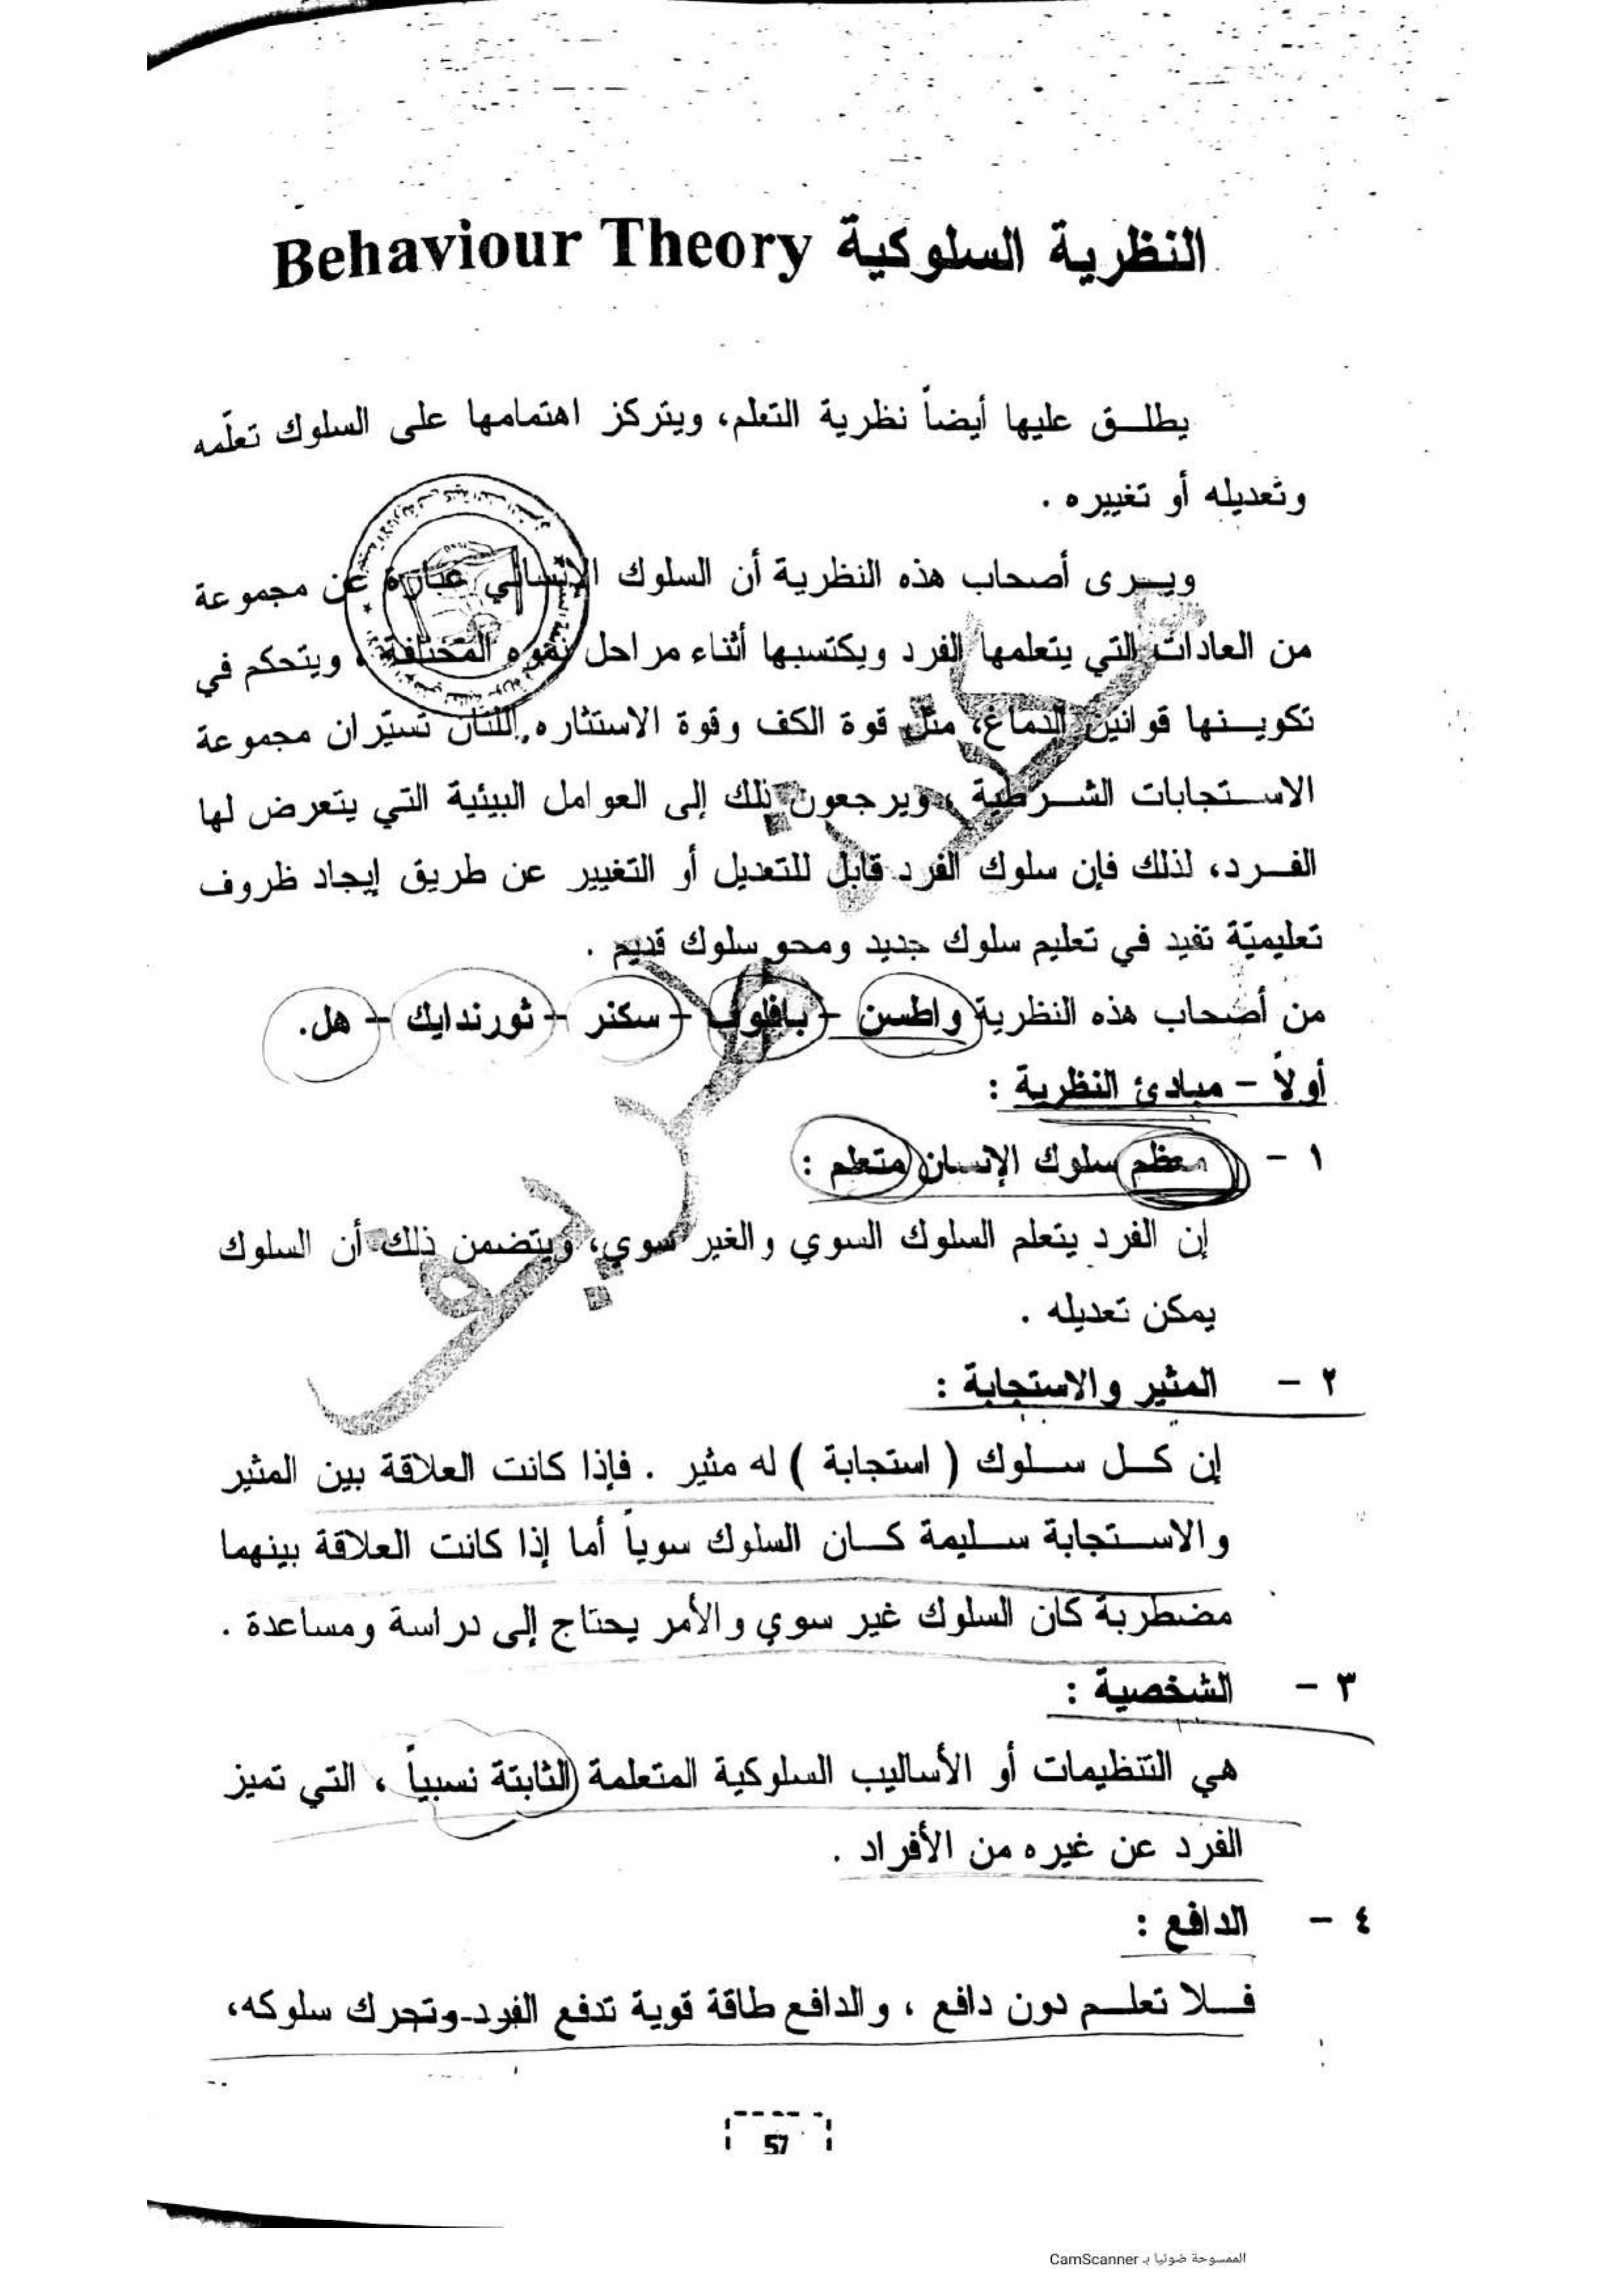 النظرية السلوكية Behaviour Theory
يطلـــق عليها أيضاً نظرية التعلم، ويتركز اهتمامها على السلوك تعلّمه
وتعديله أو تغييره .
ويـــرى أصحاب هذه النظرية أن السلوك الإنساني عبارة عن مجموعة
من العادات التي يتعلمها الفرد ويكتسبها أثناء مراحل نموه المختلفة ، ويتحكم في
تكويـــنها قوانين الدماغ، مثل قوة الكف وقوة الاستثاره, اللتان تسيّران مجموعة
الاســـتجابات الشـــرطية ، ويرجعون ذلك إلى العوامل البيئية التي يتعرض لها
الفـــرد، لذلك فإن سلوك الفرد قابل للتعديل أو التغيير عن طريق إيجاد ظروف
تعليميّة تفيد في تعليم سلوك جديد ومحو سلوك قديم .
من أصحاب هذه النظرية واطسن – بافلوف – سكنر – ثورندايك – هل.
أولاً – مبادئ النظرية :
١ – معظم سلوك الإنسان متعلم :
إن الفرد يتعلم السلوك السوي والغير سوي، ويتضمن ذلك أن السلوك
يمكن تعديله .
٢ – المثير والاستجابة :
إن كـــل ســـلوك ( استجابة ) له مثير . فإذا كانت العلاقة بين المثير
والاســـتجابة ســـليمة كـــان السلوك سوياً أما إذا كانت العلاقة بينهما
مضطربة كان السلوك غير سوي والأمر يحتاج إلى دراسة ومساعدة .
٣ – الشخصية :
هي التنظيمات أو الأساليب السلوكية المتعلمة الثابتة نسبياً ، التي تميز
الفرد عن غيره من الأفراد .
٤ – الدافع :
فـــلا تعلـــم دون دافع ، والدافع طاقة قوية تدفع الفرد وتحرك سلوكه،
57
الممسوحة ضوئيا بـ CamScanner